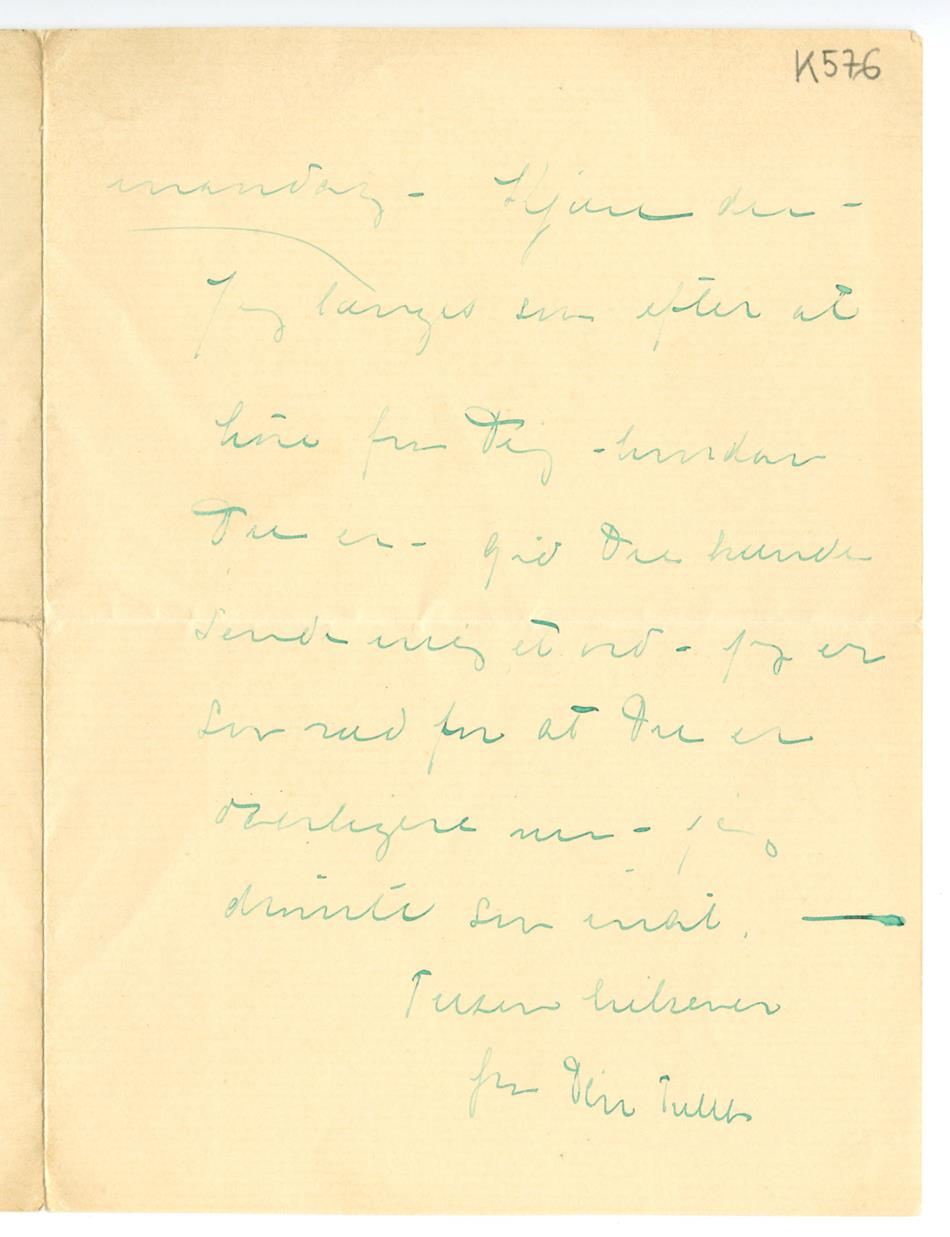 K576
mandag - Kjære du -
Jeg længes sån efter at
høre fra Dig - hvordan
Du er - gid Du kunde
sende mig et ord - jeg er
sån ræd for at Du er
dårligere nu - jeg
drømte sån inat. —
Tusen hilsener
fra Din Tulla